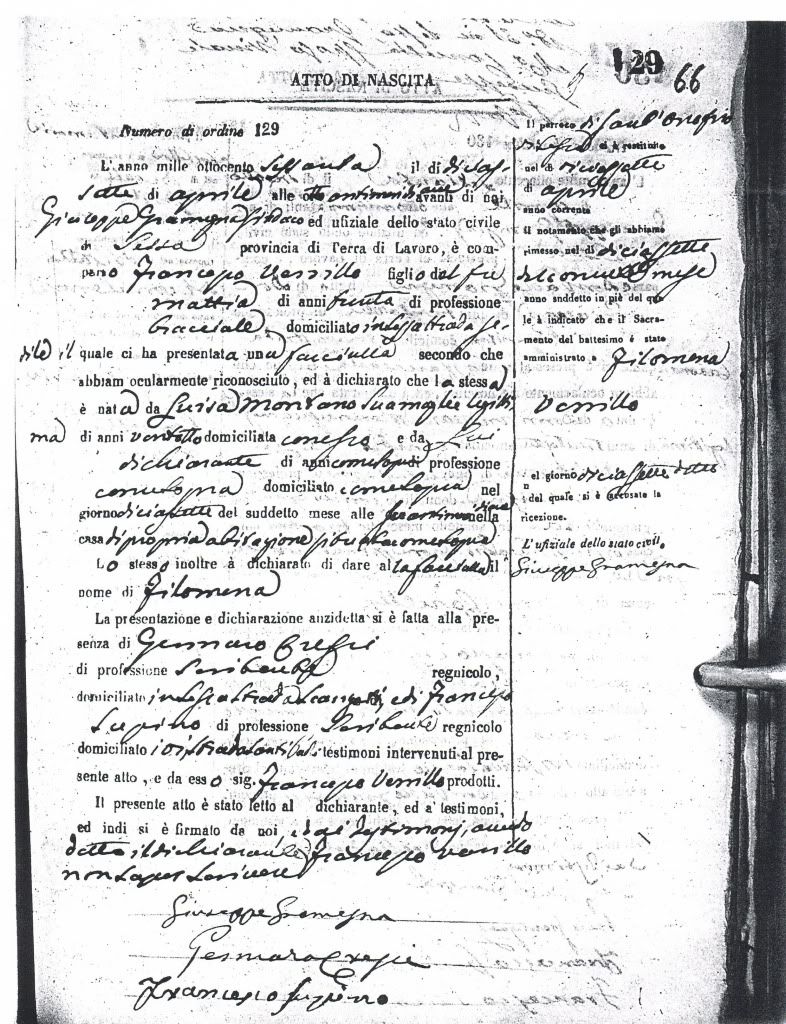 129
66
ATTO DI NASCITA
Numero di ordine 129
L'anno mille ottocento Sessanta il di dicias
sette di aprile alle otto antimeridiane avanti di noi
Giuseppe Gramegna Sindaco ed ufiziale dello stato civile
di Sessa provincia di Terra di Lavoro, è com-
parso Francesco Verrillo figlio del fu
Mattia di anni trenta di professione
bracciale, domiciliato in Sessa strada Se-
dile il quale ci ha presentata una fanciulla secondo che
abbiam ocularmente riconosciuto, ed à dichiarato che la stessa
è nata da Luisa Montano sua moglie legitti
ma di anni ventotto domiciliata con esso e da lui
dichiarante di anni come sopra di professione
come sopra domiciliato come sopra nel
giorno diciassette del suddetto mese alle antimeridiane nella
casa di propria abitazione sita come sopra
Lo stesso inoltre à dichiarato di dare alla fanciulla il
nome di Filomena
La presentazione e dichiarazione anzidetta si è fatta alla pre-
senza di Gennaro Crespi
di professione Scribente regnicolo,
domiciliato in Sessa strada ed di Francesco
Supino di professione Scribente regnicolo
domiciliato ivi strada testimoni intervenuti al pre-
sente atto, e da esso sig. Francesco Verrillo prodotti.
Il presente atto è stato letto al dichiarante, ed a' testimoni,
ed indi si è firmato da noi, e dai testimonj, avendo
detto il dichiarante Francesco Verrillo
non saper scrivere
Giuseppe Gramegna
Gennaro Crespi
Francesco Supino
Il parroco di Sant'Onofrio
di Sessa ci à restituito
nel di diciassette
di aprile
anno corrente
il notamento che gli abbiamo
rimesso nel di diciassette
del corrente mese
anno suddetto in piè del qua
le à indicato che il Sacra-
mento del battesimo è stato
amministrato a Filomena
Verrillo
el giorno diciassette detto
n
del quale si è accusato la
ricezione.
L'ufiziale dello stato civile
Giuseppe Gramegna